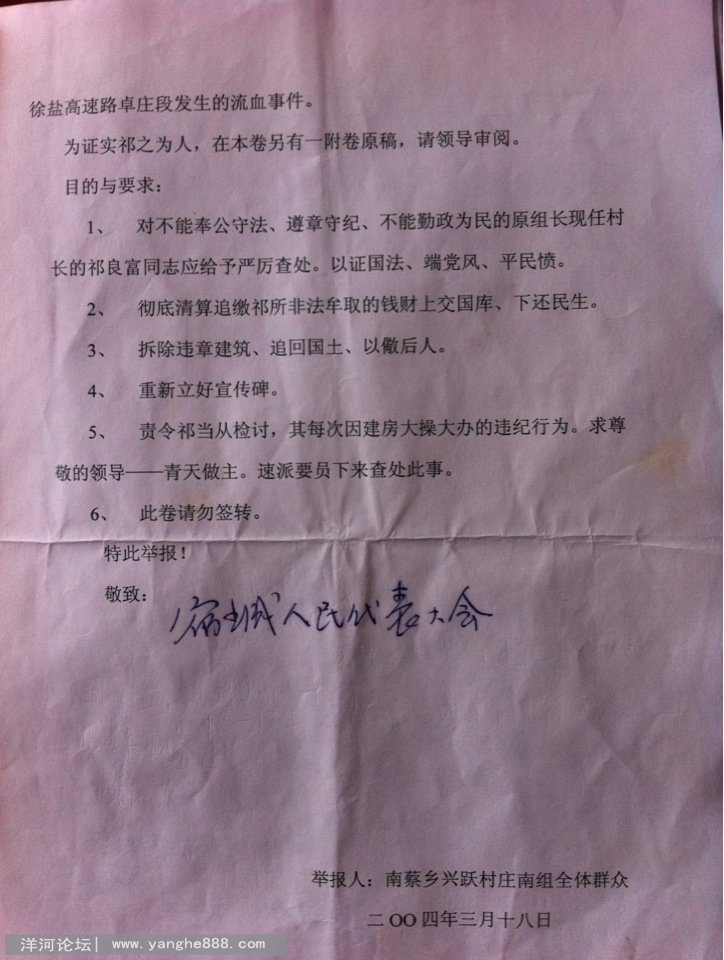 徐盐高速路卓庄段发生的流血事件。
为证实祁之为人，在本卷另有一附卷原稿，请领导审阅。
目的与要求：
1、 对不能奉公守法、遵章守纪、不能勤政为民的原组长现任村
长的祁良富同志应给予严厉查处。以证国法、端党风、平民愤。
2、 彻底清算追缴祁所非法牟取的钱财上交国库、下还民生。
3、 拆除违章建筑、追回国土、以儆后人。
4、 重新立好宣传碑。
5、 责令祁当从检讨，其每次因建房大操大办的违纪行为。求尊
敬的领导——青天做主。速派要员下来查处此事。
6、 此卷请勿签转。
特此举报！
敬致：
宿城人民代表大会
举报人：南蔡乡兴跃村庄南组全体群众
二OO四年三月十八日
洋河论坛| www.yanghe888.com